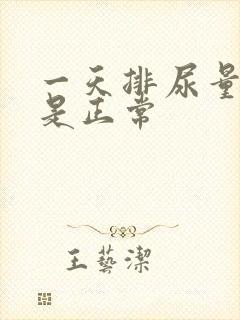 一天排尿量
是正常
王藝潔